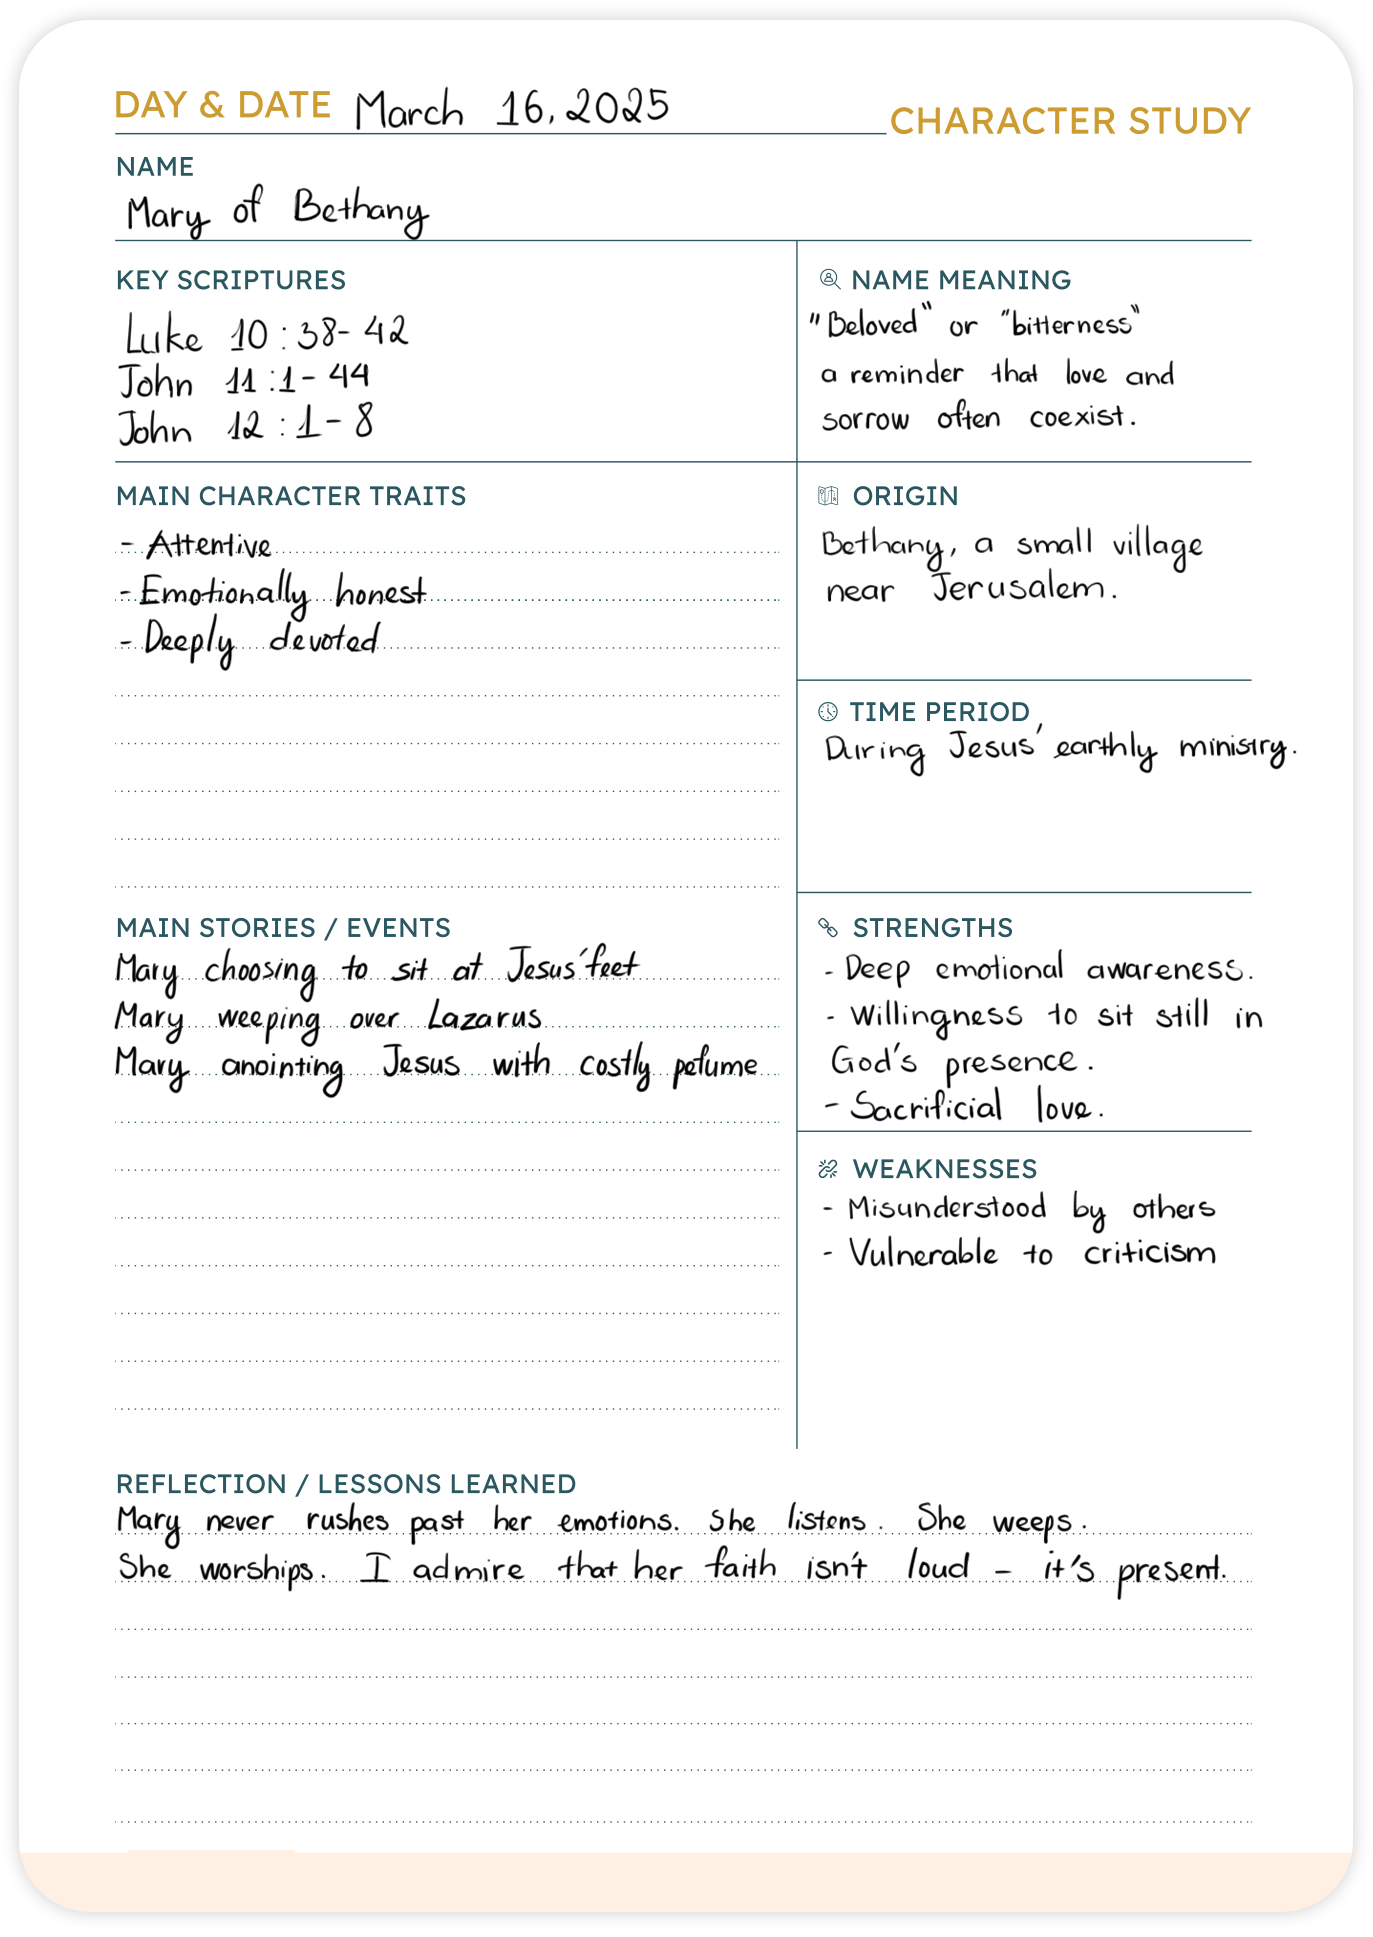 DAY & DATE March 16, 2025
CHARACTER STUDY
NAME
Mary of Bethany
KEY SCRIPTURES
Luke 10:38-42
John 11:1-44
John 12:1-8
NAME MEANING
"Beloved" or "bitterness"
a reminder that love and
sorrow often coexist.
MAIN CHARACTER TRAITS
- Attentive
- Emotionally honest
- Deeply devoted
ORIGIN
Bethany, a small village
near Jerusalem.
TIME PERIOD
During Jesus' earthly ministry.
MAIN STORIES / EVENTS
Mary choosing to sit at Jesus' feet
Mary weeping over Lazarus
Mary anointing Jesus with costly pefume
STRENGTHS
- Deep emotional awareness.
- Willingness to sit still in
God's presence.
- Sacrificial love.
WEAKNESSES
- Misunderstood by others
- Vulnerable to criticism
REFLECTION / LESSONS LEARNED
Mary never rushes past her emotions. She listens. She weeps.
She worships. I admire that her faith isn't loud - it's present.